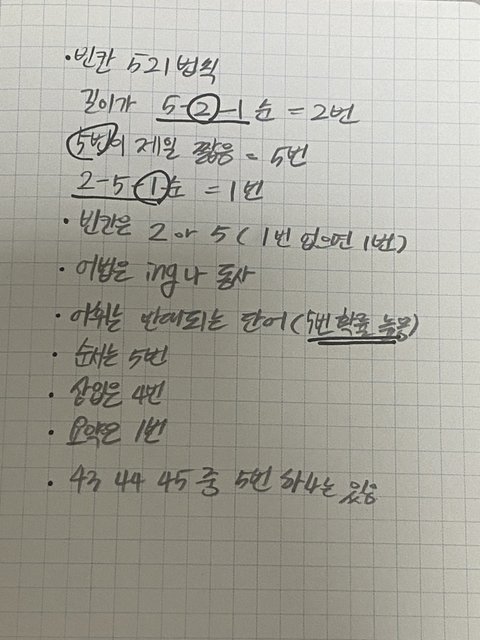 ·빈칸 521법칙
길이가 5-2-1 순 = 2번
5번이 제일 짧음 = 5번
2-5-1순 = 1번
· 빈칸은 2 or 5 ( 1번 없으면 1번)
· 어법은 ing나 동사
· 어휘는 반대되는 단어 (5번 확률 높음)
· 순서는 5번
· 삽입은 4번
· 요약은 1번
· 43 44 45 중 5번 하나는 있음